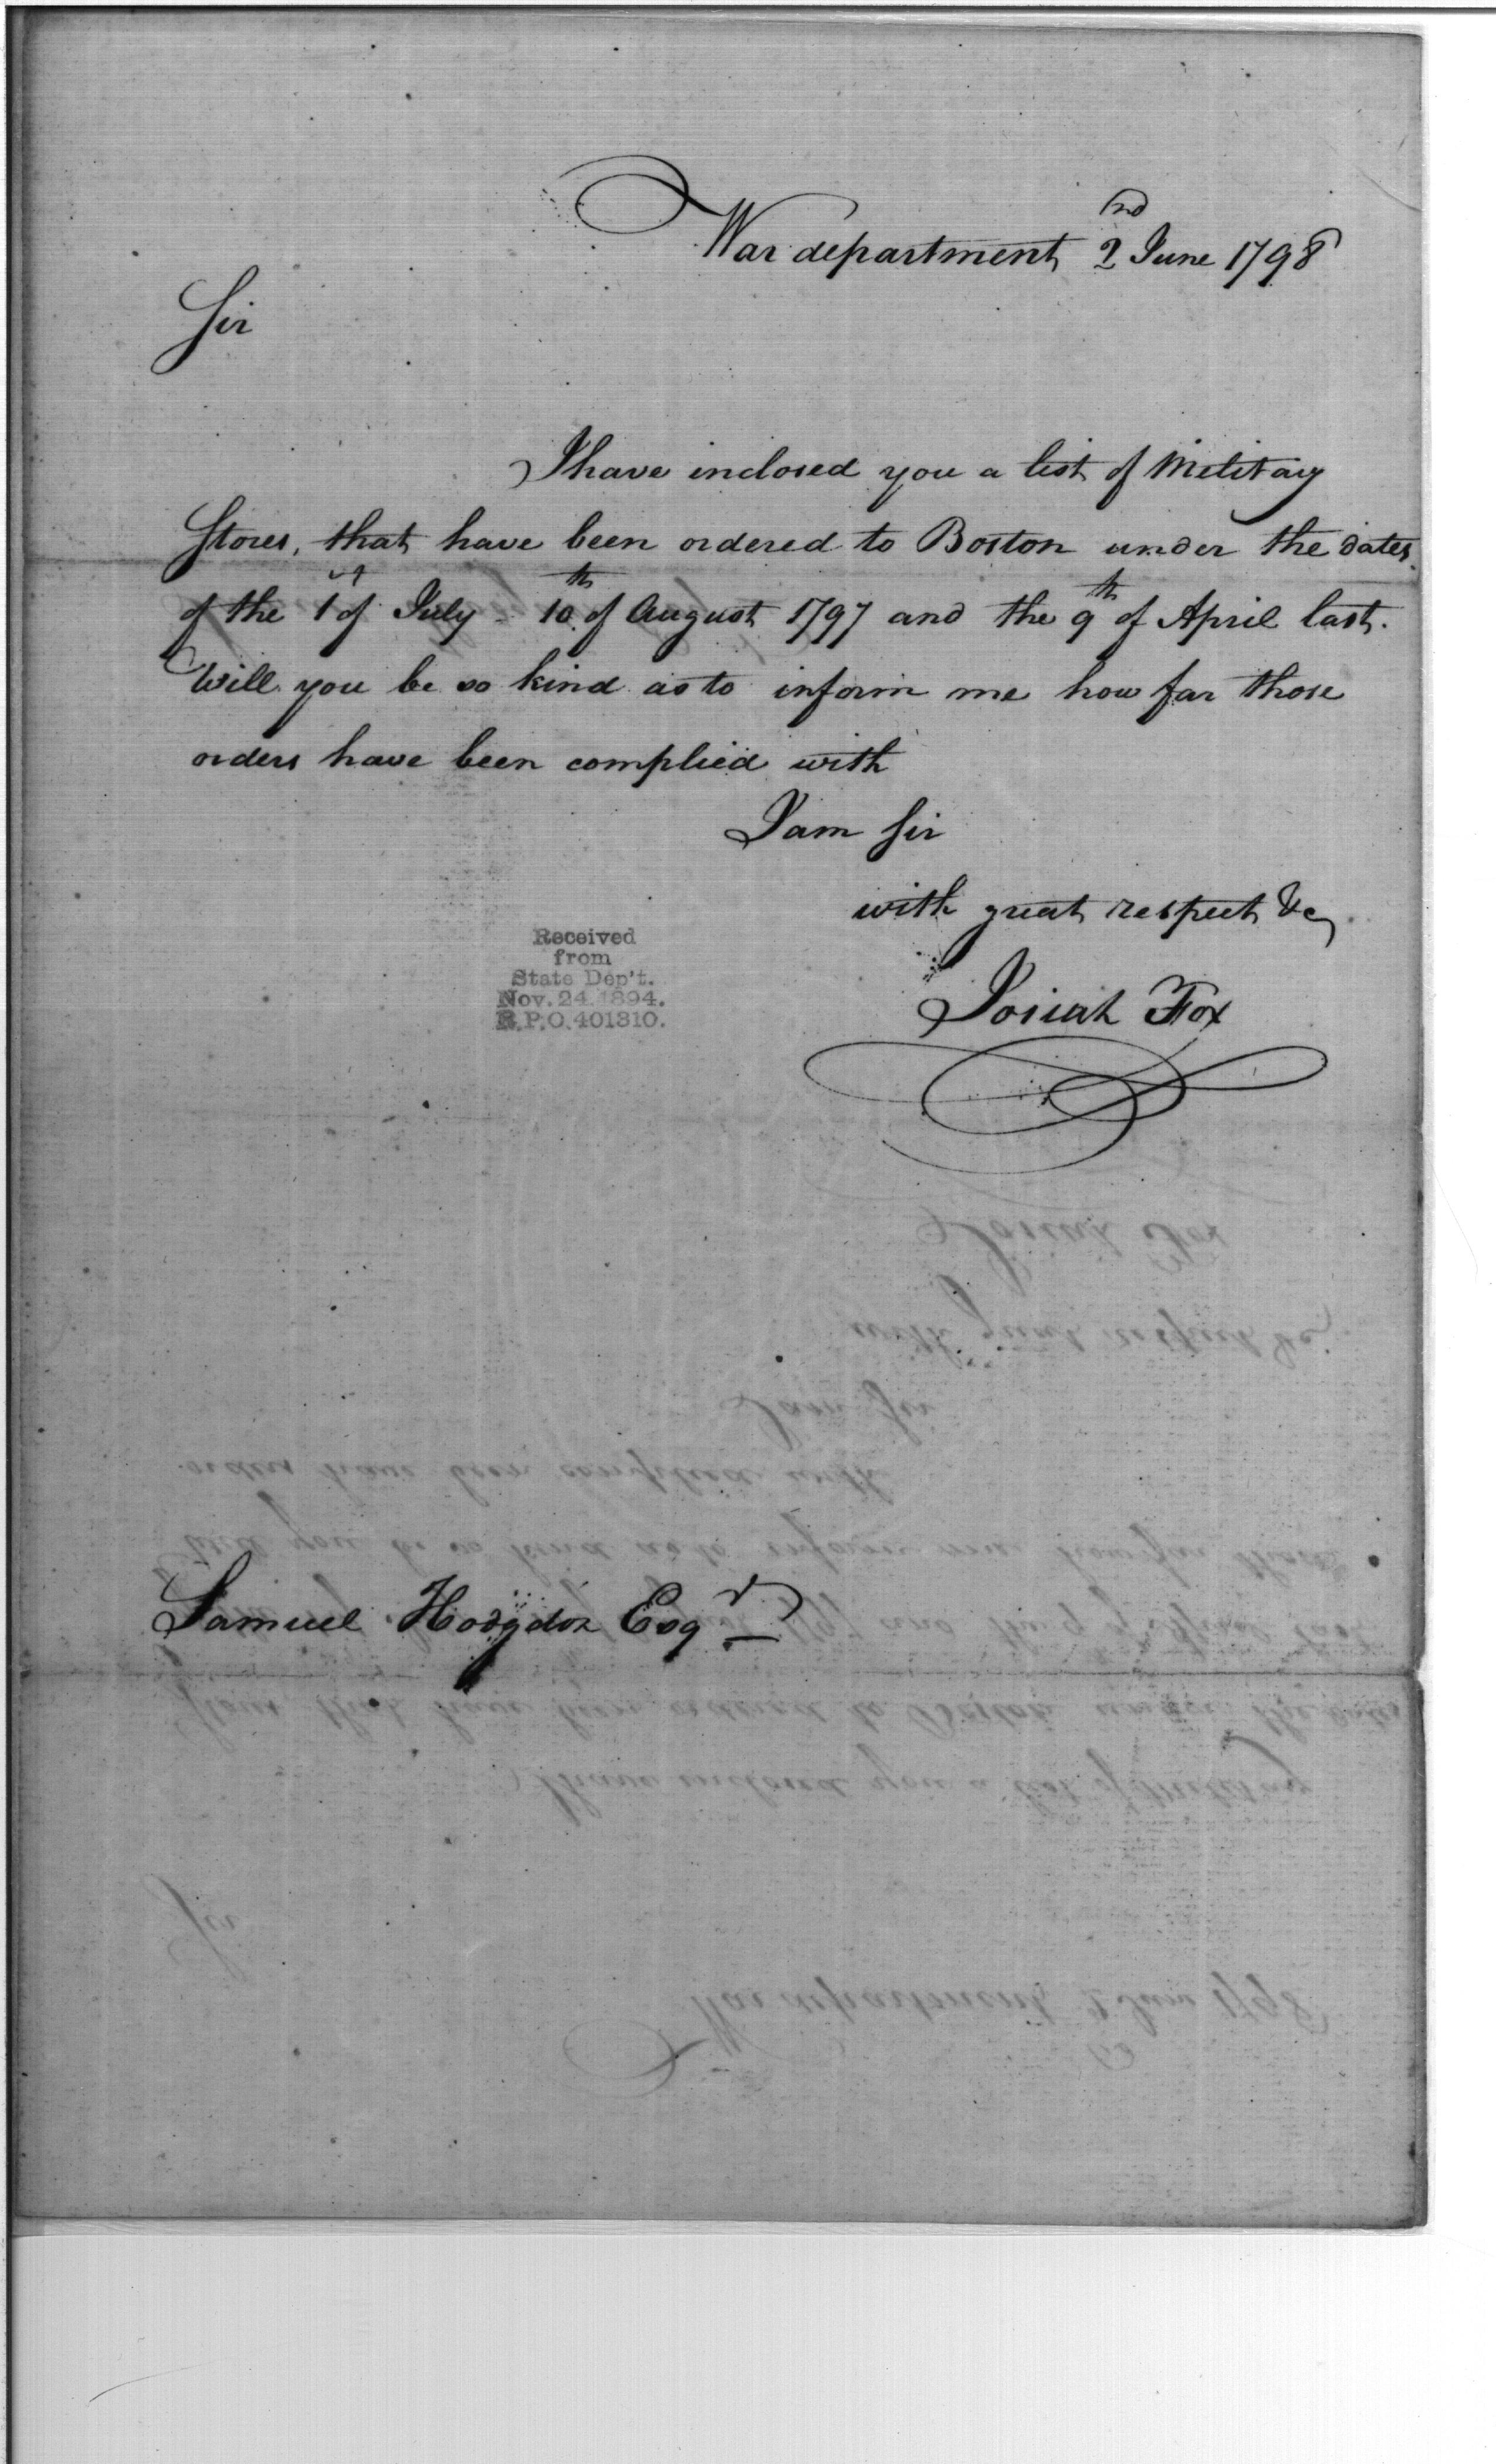 War department 2nd June 1798
Sir
I have inclosed you a list of Military
Stores, that have been ordered to Boston under the dates
of the 1st of July - 10th of August 1797 and the 9th of April last.
Will you be so kind as to inform me how far those
orders have been complied with
I am Sir
with great respect &c
Josiah Fox
Received
from
State Dep't.
Nov. 24. 1894.
R.P.O. 401310.
Samuel Hodgdon Esqr